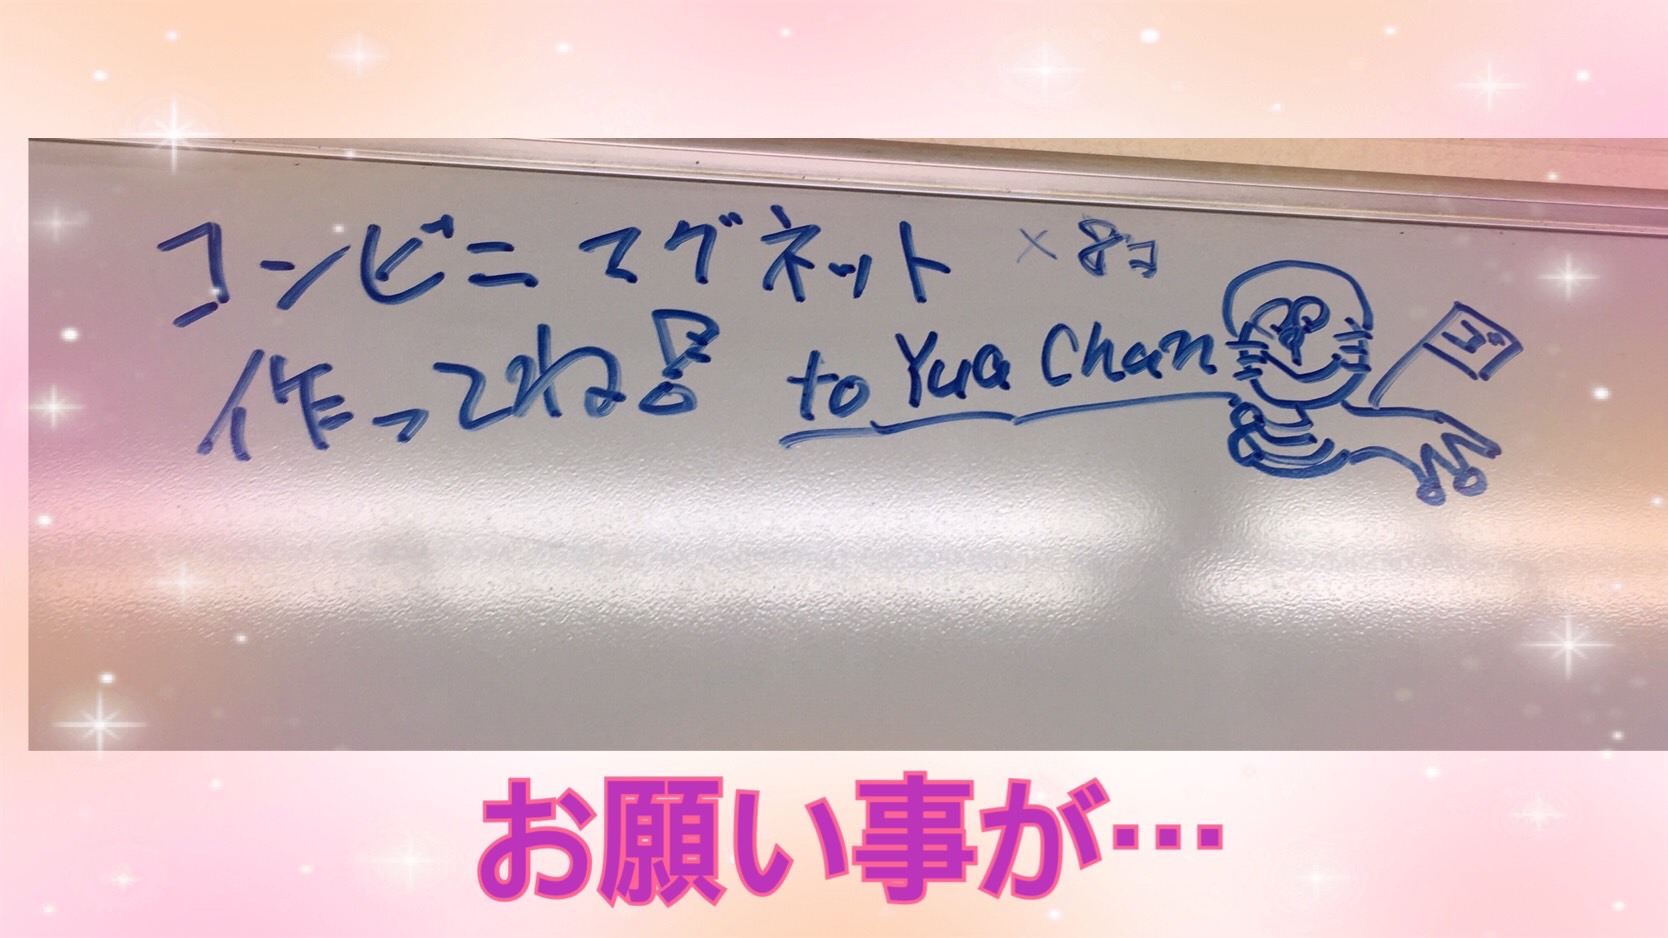 コンビニ マグネット ×8コ
作ってね! to Yua Chan
お願い事が…